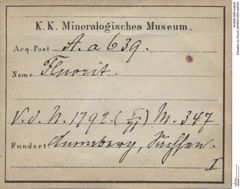 K. K. Mineralogisches Museum.
Acq. Post. A. a 639.
Name Fluorit.
V. d. N. 1792 M. 347
Fundort Annaberg, Sachsen.
I